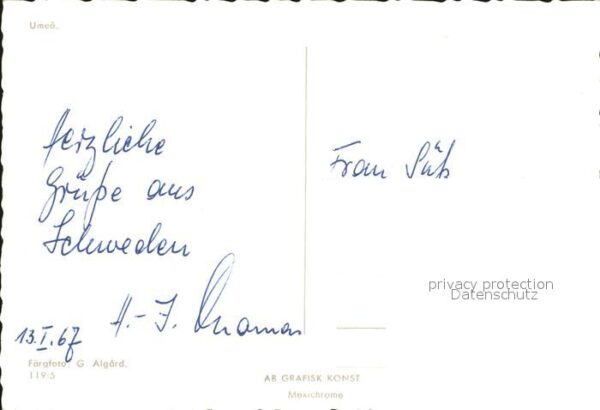 Umeå.
Herzliche
Grüße aus
Schweden
H.-J.
13.I.67
Frau Süß
privacy protection
Datenschutz
Färgfoto: G. Algård.
119/5
AB GRAFISK KONST
Mexichrome